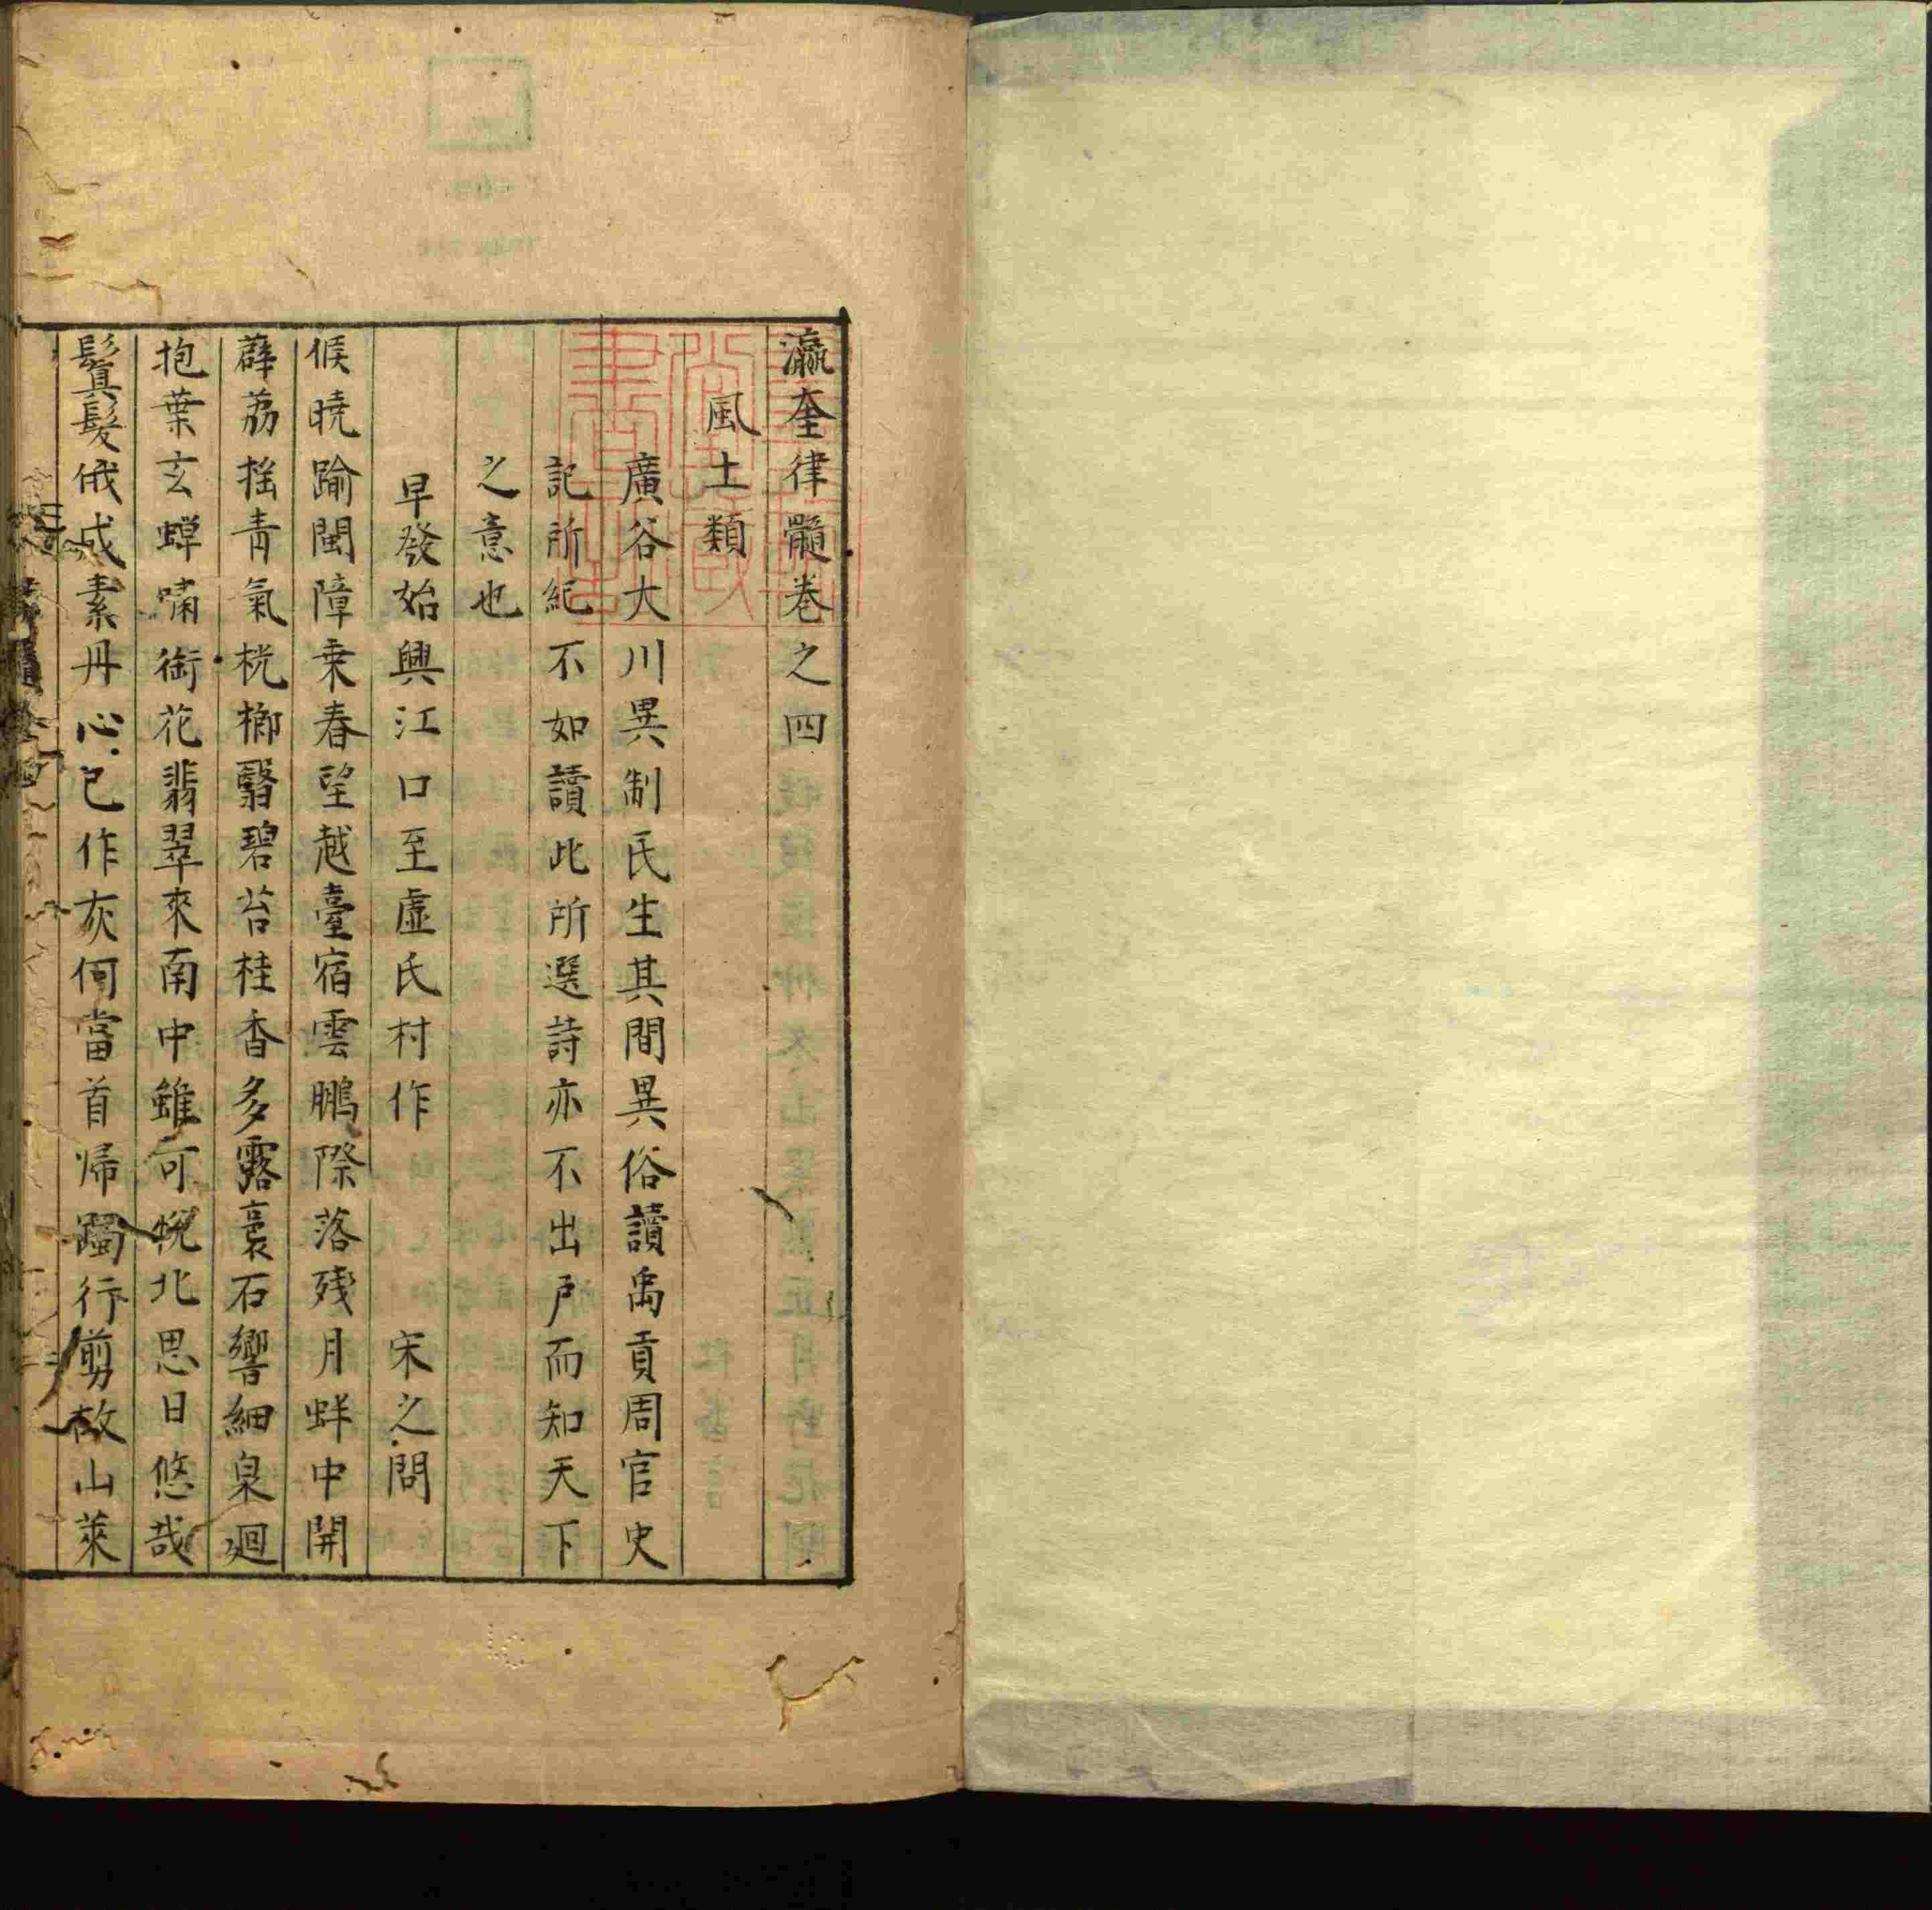 瀛奎律髓卷之四
風土類
廣谷大川異制民生其間異俗讀禹貢周官史
記所紀不如讀此所選詩亦不出戶而知天下
之意也
早發始興江口至虛氏村作 宋之問
候曉踰閩障乗春望越臺宿雲鵬際落殘月蚌中開
薜荔揺青氣桄榔翳碧苔桂香多露裛石響細泉廻
抱葉玄蟬嘯銜花翡翠來南中雖可悅北思日悠哉
鬒髮俄成素丹心已作灰何當首帰躅行剪故山萊